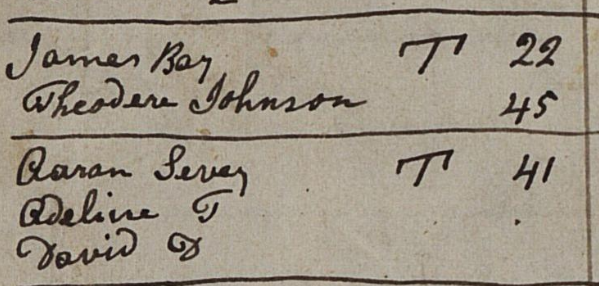 James Bay T 22
Theodere Johnson 45
Aaran Sevey T 41
Adeline T
David D